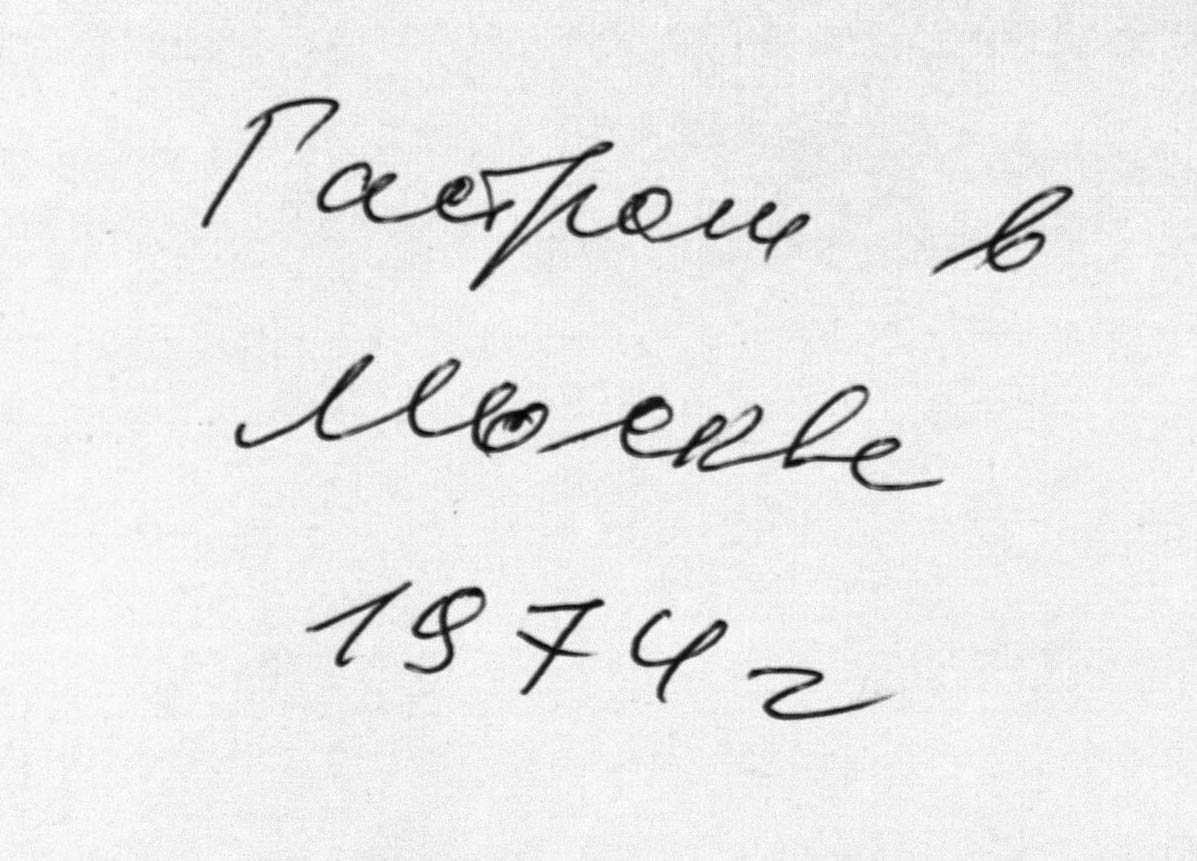 Гастроли в
Москве
1974 г